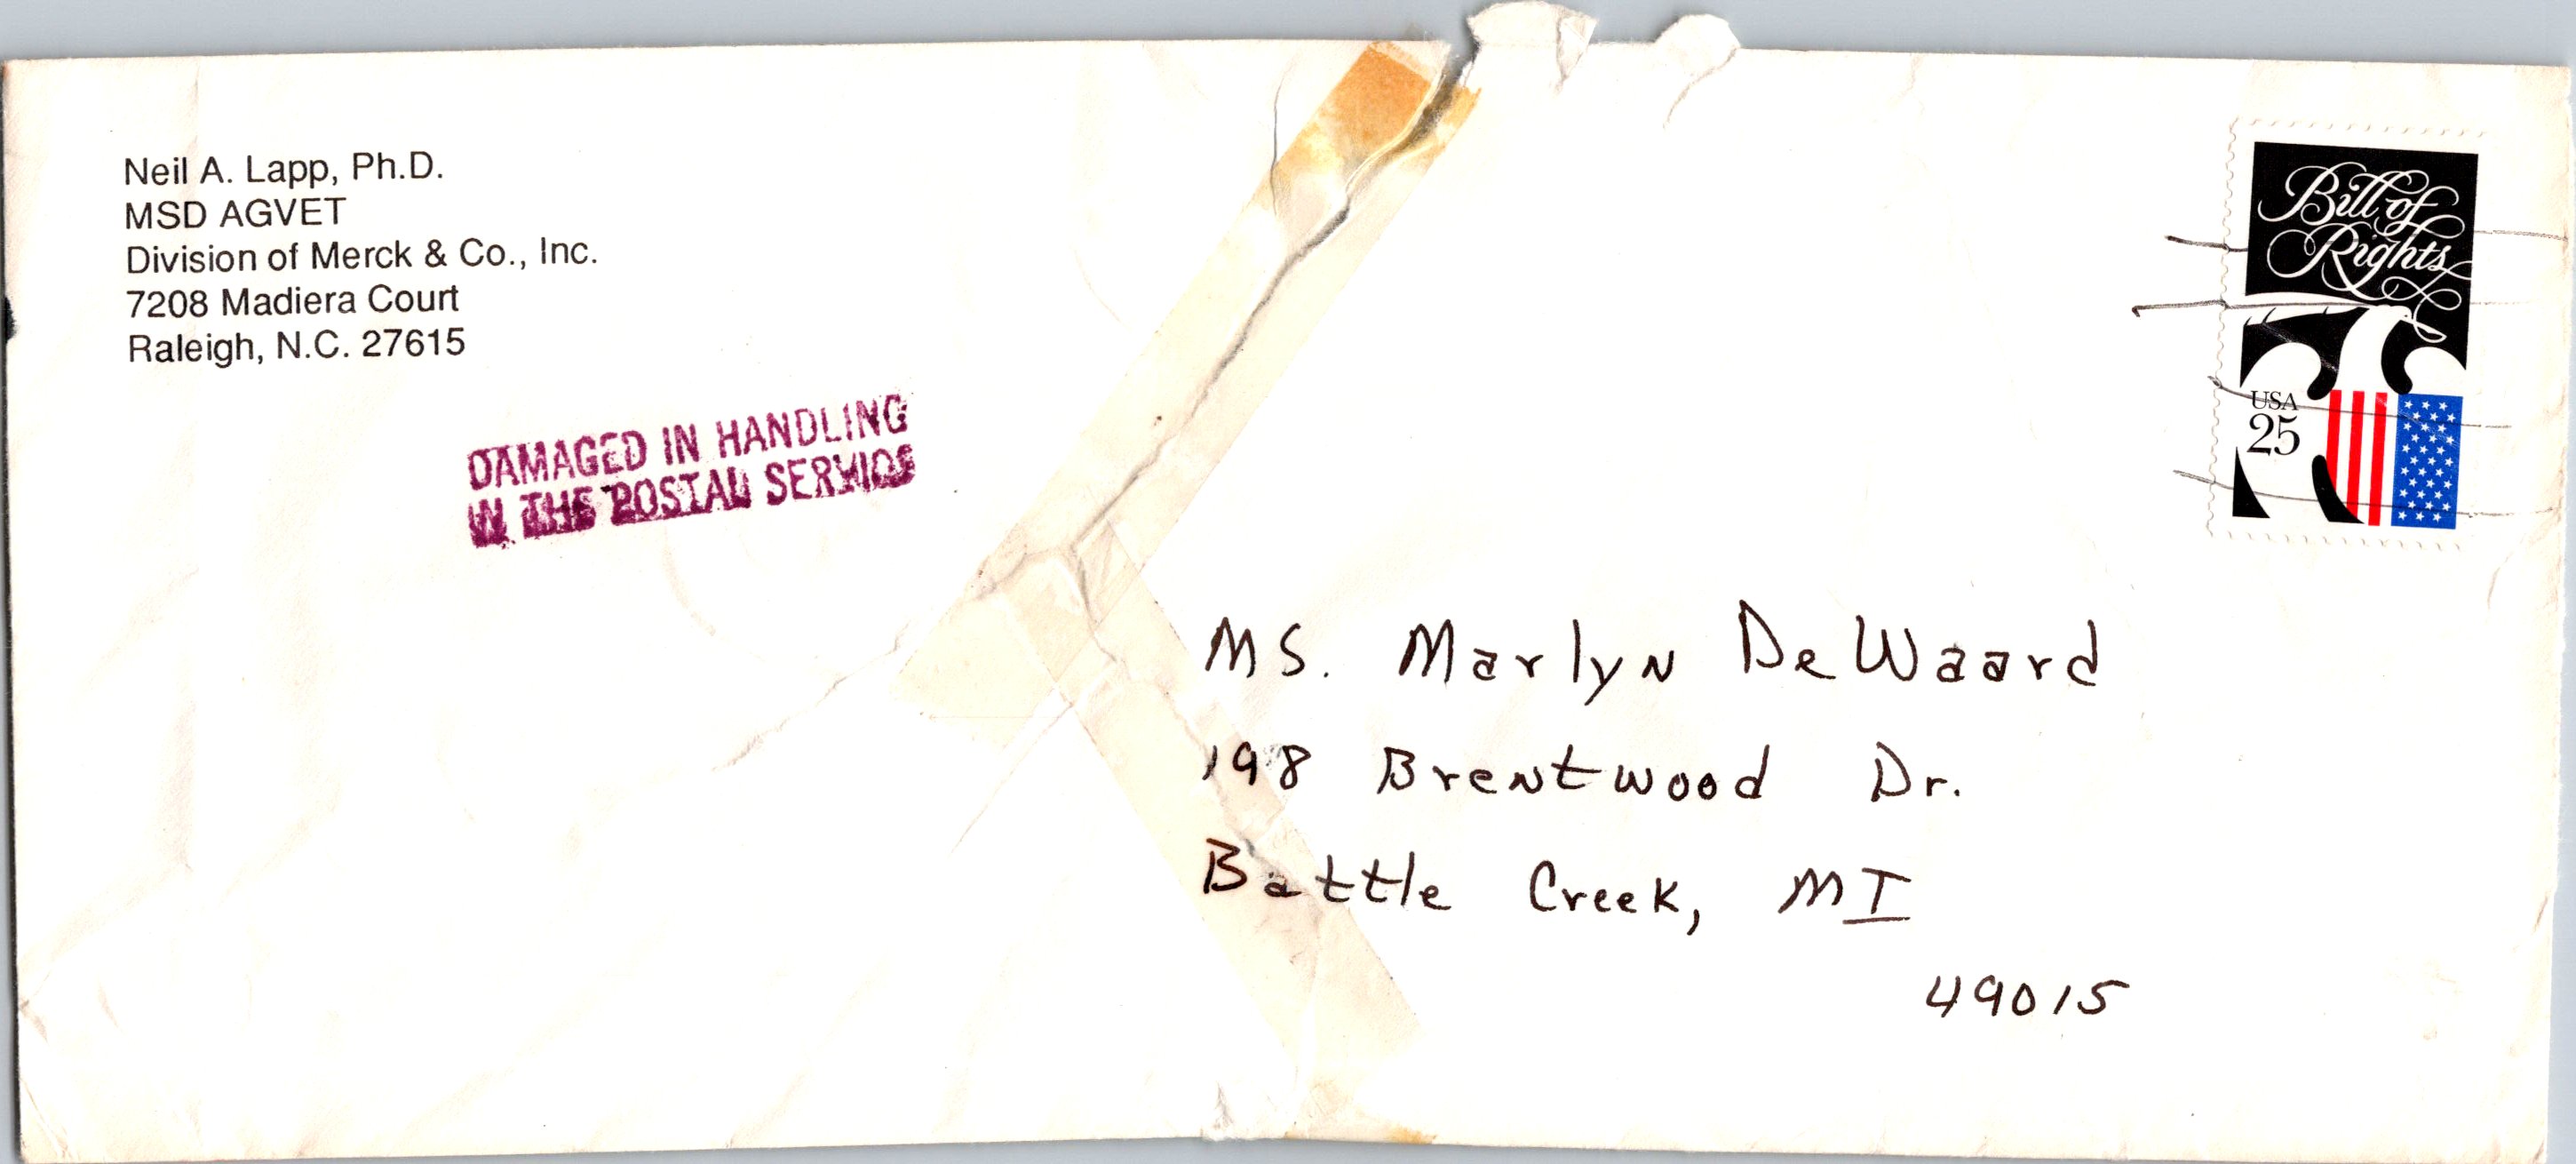 Neil A. Lapp, Ph.D.
MSD AGVET
Division of Merck & Co., Inc.
7208 Madiera Court
Raleigh, N.C. 27615
DAMAGED IN HANDLING
IN THE POSTAL SERVICE
Bill of
Rights
USA
25
MS. Marlyn DeWaard
198 Brentwood Dr.
Battle Creek, MI
49015